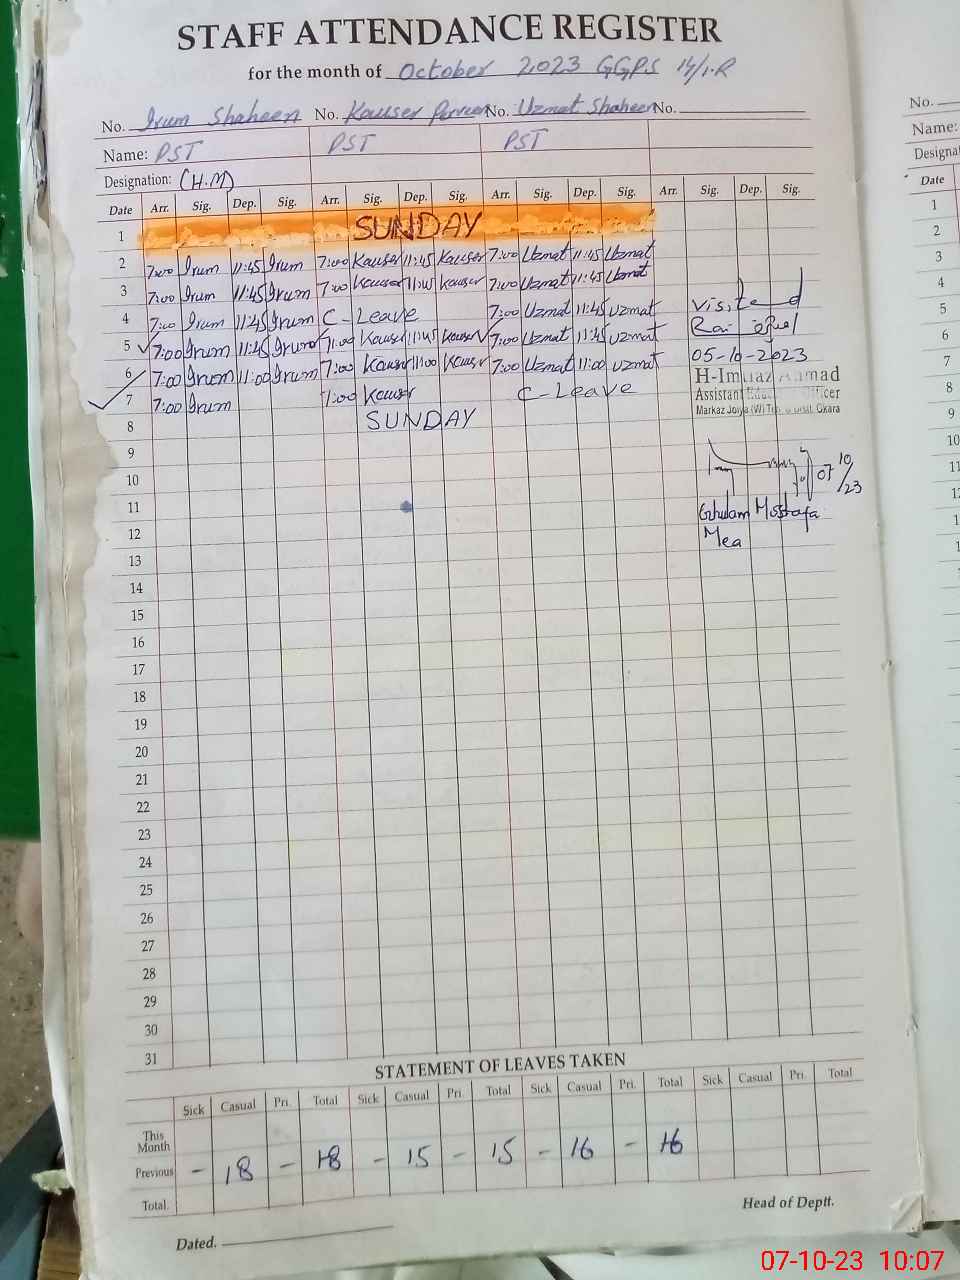 STAFF ATTENDANCE REGISTER
for the month of October 2023 GGPS 14/1.R
No. Irum Shaheen No. Kauser Perveen No. Uzmat Shaheen No.
Name: PST PST PST
Designation: (H.M)
Date Arr. Sig. Dep. Sig. Arr. Sig. Dep. Sig. Arr. Sig. Dep. Sig. Arr. Sig. Dep. Sig.
1 SUNDAY
2 7:00 Irum 11:45 Irum 7:00 Kauser 11:45 Kauser 7:00 Uzmat 11:45 Uzmat
3 7:00 Irum 11:45 Irum 7:00 Kauser 11:45 Kauser 7:00 Uzmat 11:45 Uzmat
4 7:00 Irum 11:45 Irum C-Leave 7:00 Uzmat 11:45 Uzmat
5 7:00 Irum 11:45 Irum 7:00 Kauser 11:45 Kauser 7:00 Uzmat 11:45 Uzmat
6 7:00 Irum 11:00 Irum 7:00 Kauser 11:00 Kauser 7:00 Uzmat 11:00 Uzmat
7 7:00 Irum 7:00 Kauser C-Leave
8 SUNDAY
Visited
05-10-2023
H-Imtiaz Ahmad
Assistant Education Officer
Markaz Joiya (W) Okara
07/10/23
Ghulam Mostafa
Mea
9
10
11
12
13
14
15
16
17
18
19
20
21
22
23
24
25
26
27
28
29
30
31
STATEMENT OF LEAVES TAKEN
Sick Casual Pri. Total Sick Casual Pri. Total Sick Casual Pri. Total Sick Casual Pri. Total
This Month
Previous - 18 - 18 - 15 - 15 - 16 - 16
Total.
Head of Deptt.
Dated.
Date
Name:
No.
1
2
3
4
5
6
7
8
9
10
11
07-10-23 10:07